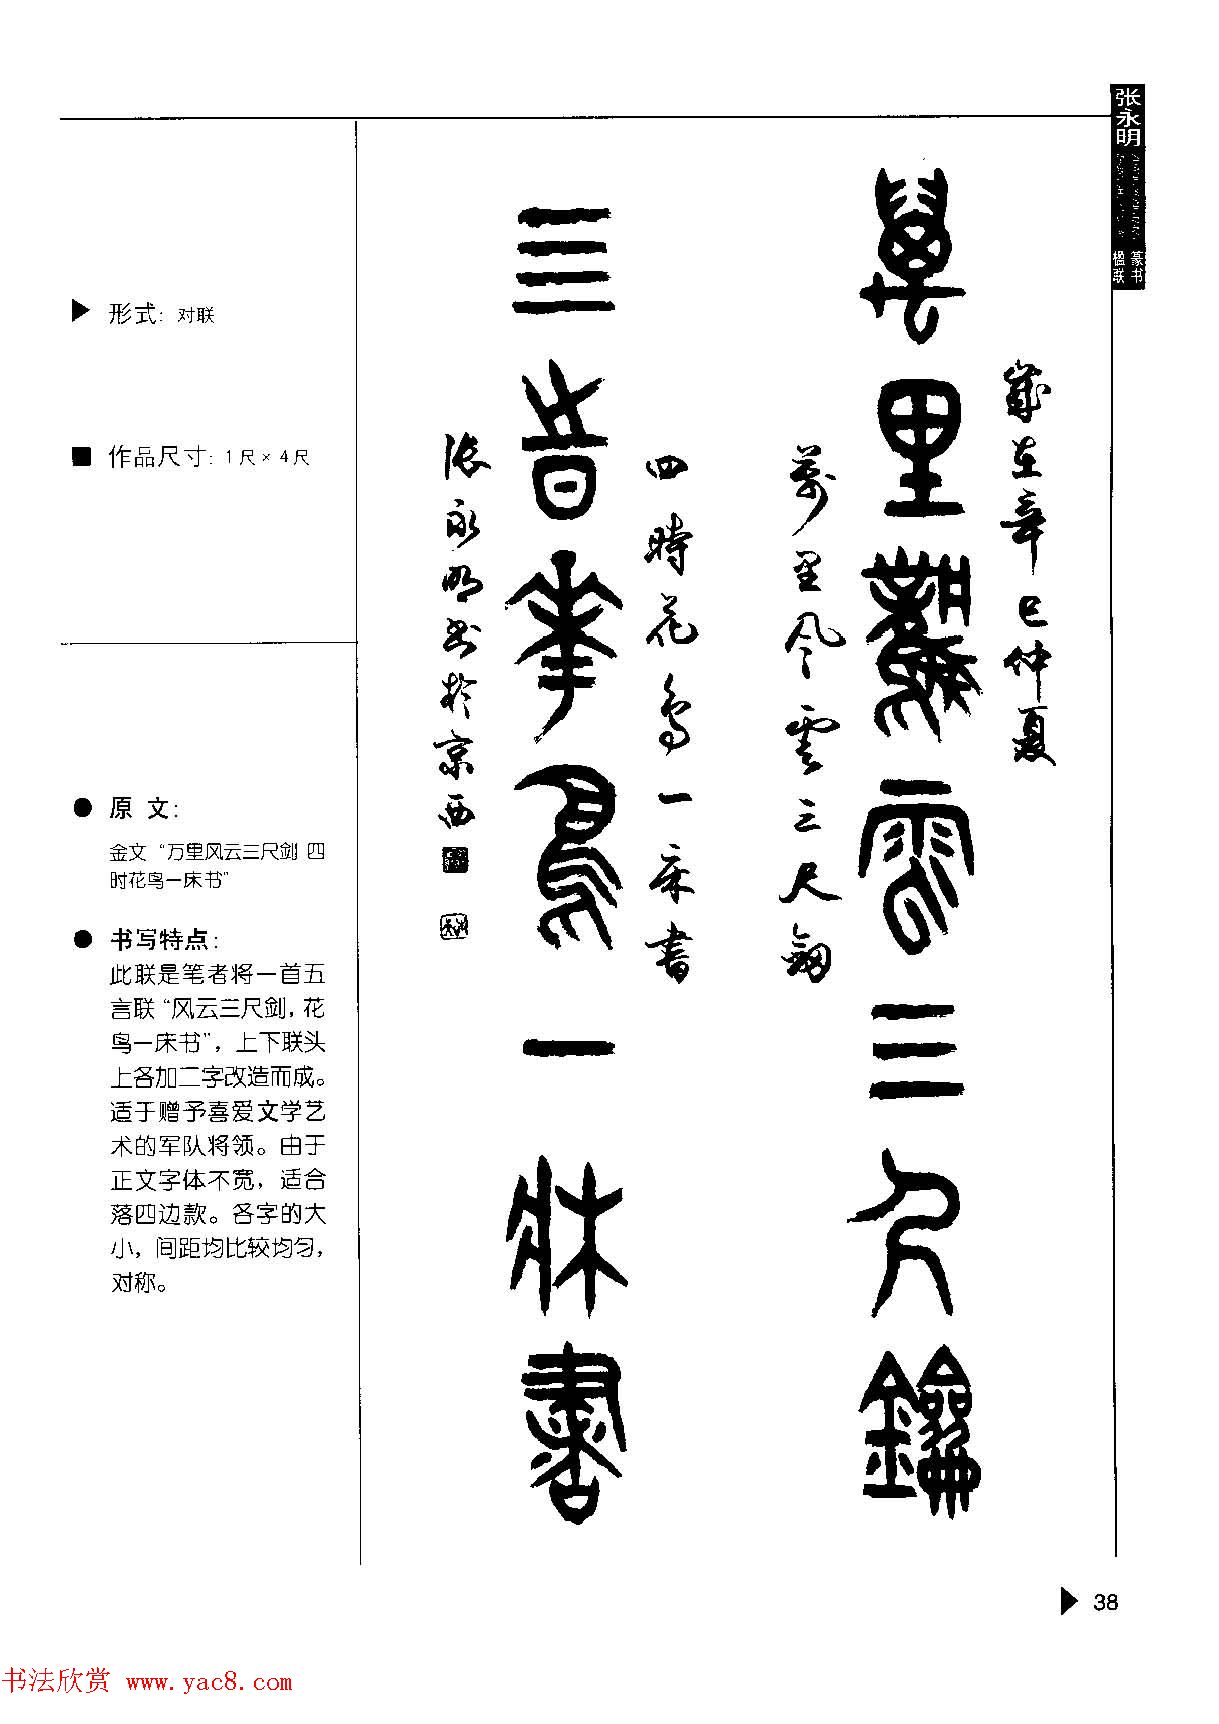 张永明
篆书
楹联
形式：对联
作品尺寸：1尺×4尺
原 文：
金文“万里风云三尺剑 四
时花鸟一床书”
书写特点：
此联是笔者将一首五
言联“风云三尺剑，花
鸟一床书”，上下联头
上各加二字改造而成。
适于赠予喜爱文学艺
术的军队将领。由于
正文字体不宽，适合
落四边款。各字的大
小，间距均比较均匀，
对称。
歲在辛巳仲夏
萬里風雲三尺鐱
萬里风雲三尺劔
四時花鸟一床書
三時華鳥一牀書
张永明书於京西
38
书法欣赏 www.yac8.com